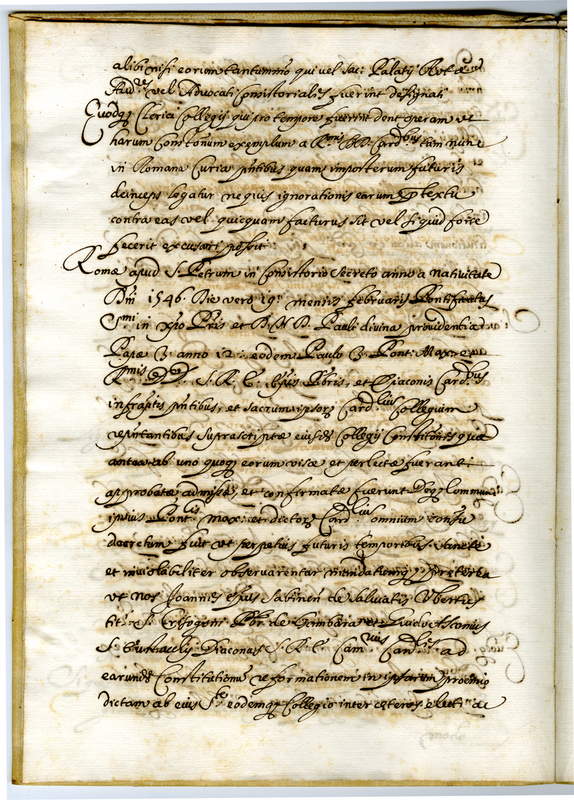 alibi nisi eorum tantummo qui vel sac: Palatij Rotæ
Aud.es vel Advocati Consistoriales fuerint designati
Quodq Clerici Collegij qui pro tempore fuerint dent operam ut
harum Const.onum exemplum a R.mis DD Card.bus tum nunc
in Romana Curia pntibus quam in posterum futuris
deinceps legatur ne quis ignorationis earum ptextu
contra eas vel quicquam facturus sit vel si quid forte
fecerit excusari possit
Romæ apud S. Petrum in Consistorio secreto anno a Nativitate
Dni 1546 Die vero 19 mensis februarij Pontificatus
S.mi in Xpo Pris et D. N. D. Pauli divina providentia
Papæ 3 anno 12: eodem Paulo 3 Pont: Max:
R.mis S. R. E. Epis Pbris, et Diaconis Card.bus
infraptis pntibus, et sacrum ipsoq Card.lium Collegium
repntantibus suprascriptæ eiusde Collegij Constitones quæ
antea ab uno quoq eorum visæ et perlectæ fuerant
approbatæ admissæ, et confirmatæ fuerunt Deq Communi
ipsius Pont.is Max: et dictoq Card.lium omnium consu
decretum fuit ut perpetuis futuris temporibus sancte
et inviolabiliter observarentur mandatumq præterea
ut nos Joannes Epus Sabinen de Salviatis Ubertus
tit: S. Crisogoni Pbr de Gambara et Guido Ascanius
S. Eustachij Diaconus S. R. E. Cam.rius Card.les ad
earunde Constitutionu reformationem in ipsarum proemio
dictam ab eius S.te eodemq Collegio inter cæteros electi ac